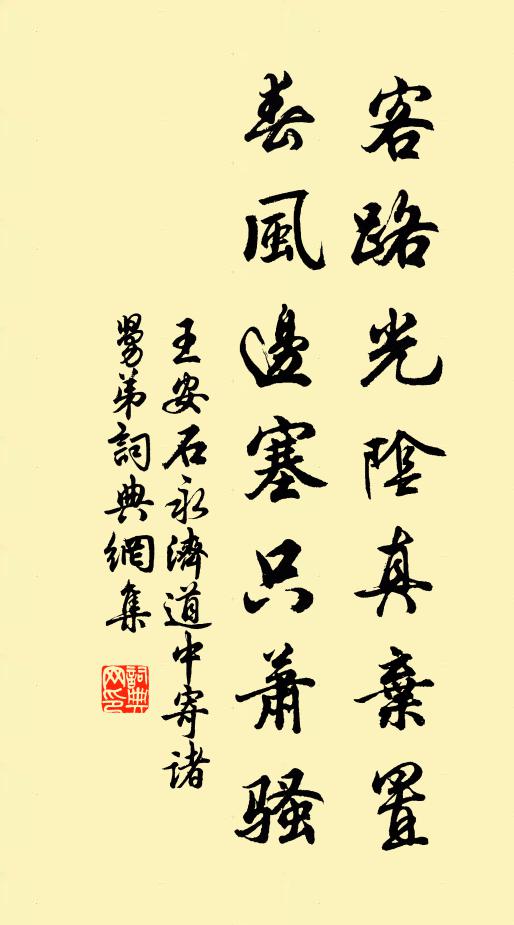 客路光陰真棄置
春風邊塞只蕭騷
王安石永濟道中寄諸
舅弟詞典網集
詞典網印